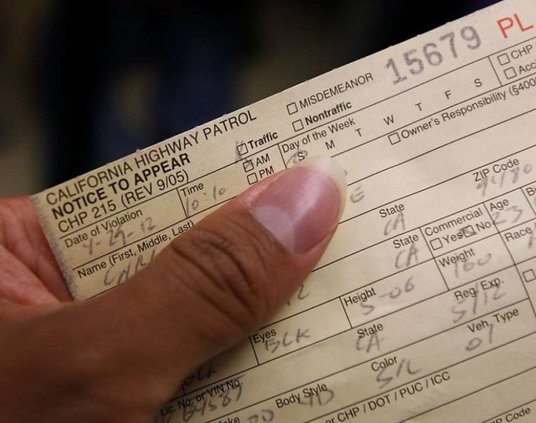 CALIFORNIA HIGHWAY PATROL
NOTICE TO APPEAR
CHP 215 (REV 9/05)
MISDEMEANOR
15679
PL
Traffic
Nontraffic
CHP
Date of Violation
4-29-12
Time
10:10
AM
PM
Day of the Week
S M T W T F S
Owner's Responsibility
Name (First, Middle, Last)
State
CA
ZIP Code
State
CA
Commercial
Yes
No
Age
23
Height
5-06
Weight
160
Race
Eyes
BLK
State
CA
Reg/Exp.
5/12
Lic. No. or VIN No.
Body Style
4D
Color
SIL
Veh, Type
01
or CHP / DOT / PUC / ICC
ZIP Code